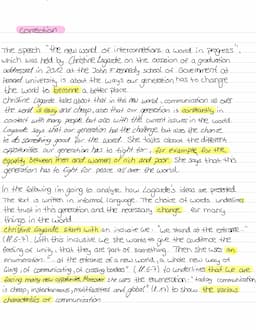 Correction
The speech "the new world of interconnections a world in progress",
which was held by Christine Lagarde on the occasion of a graduation
addressed in 2012 at the John F. Kennedy school of Government at
Harvard university, is about the ways our generation has to change
the world to become a better place.
Christine Lagarde talks about that in the new world, communication all over
the world is easy and cheap, also that our generation is constantly in
contact with many people but also with the current issues in the world.
Lagarde says that our generation has the challenge but also the chance
to do something good for the world. She talks about the different
opportunities our generation has to fight for, for example for the
equality between men and women or rich and poor. She says that this
generation has to fight for peace all over the world.
In the following I'm going to analyse how Lagarde's ideas are presented.
The text is written in informal language. The choice of words underlines
the trust in this generation and the necessary change for many
things in the world.
Christine Lagarde starts with an inclusive we: "we stand at the entrance..."
(ll.6-7). With this inclusive we she wants to give the audience the
feeling of unity, that they are part of something. Then she uses an
enumeration: "...at the entrance of a new world, a whole new way of
living, of communicating, of crossing borders" (ll.6-7) to underlines that we are
facing many new opportunities. Moreover she uses the enumeration: "today communication
is cheap, instantaneous, multifaceted and global" (l.11) to show the various
characteristics of communication